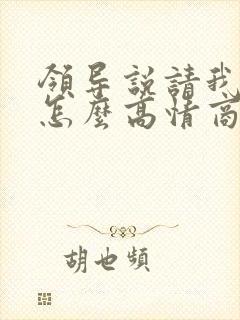 領导説請我
怎麼高情商
胡也頻